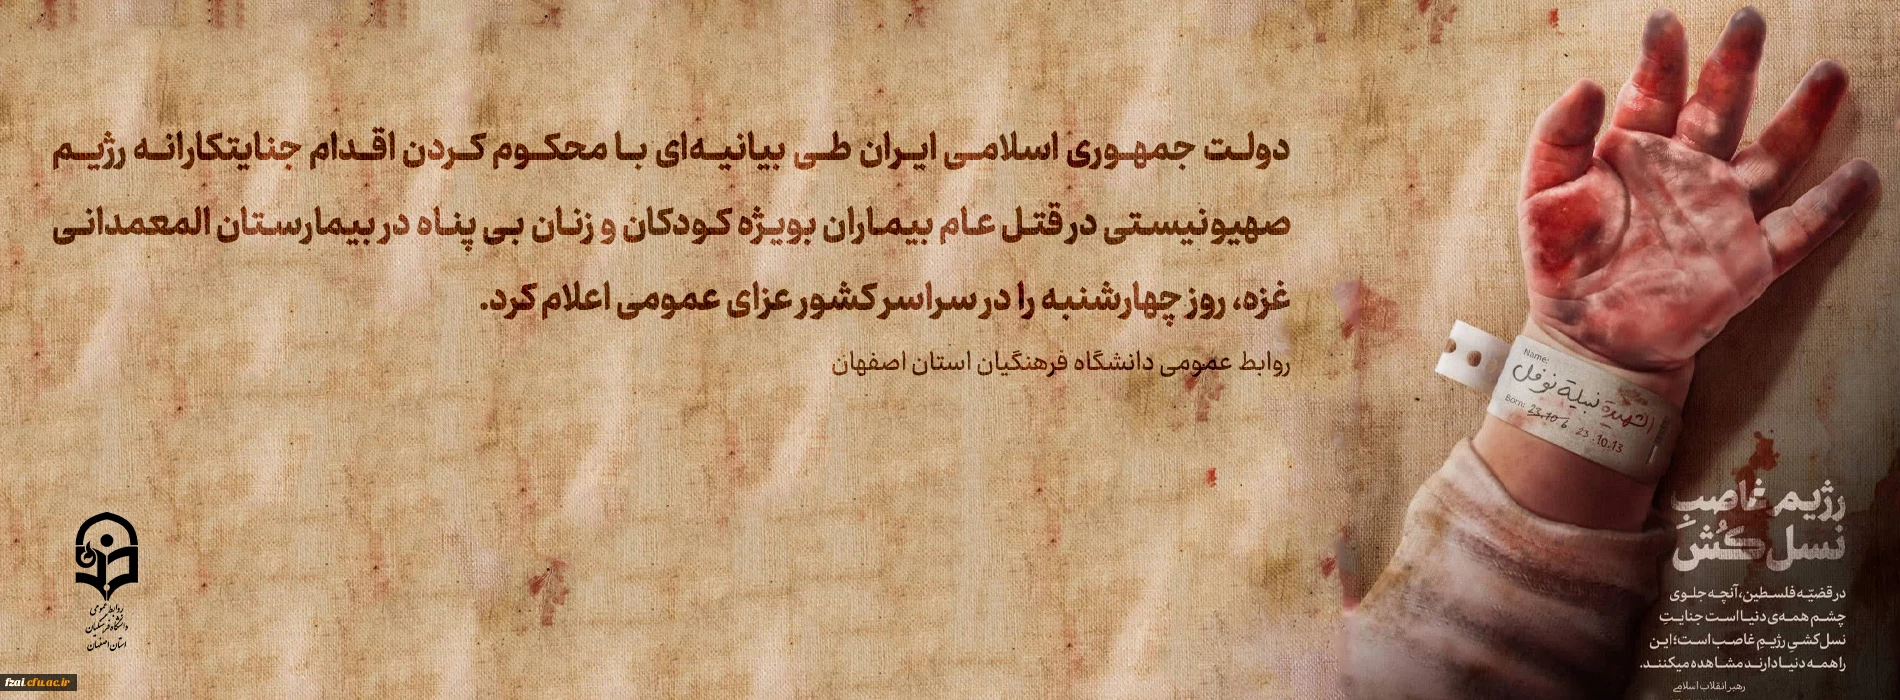 دولت جمهوری اسلامی ایران طی بیانیه‌ای با محکوم کردن اقدام جنایتکارانه رژیم
صهیونیستی در قتل عام بیماران بویژه کودکان و زنان بی پناه در بیمارستان المعمدانی
غزه، روز چهارشنبه را در سراسر کشور عزای عمومی اعلام کرد.
روابط عمومی دانشگاه فرهنگیان استان اصفهان
Name:
الشهيدة نبيلة نوفل
Born: 23.10.6 23.10.13
رژیم غاصبِ
نسل‌کُش
در قضیّه فلسطین، آنچه جلوی
چشم همه‌ی دنیا است جنایتِ
نسل‌کشیِ رژیمِ غاصب است؛ این
را همه دنیا دارند مشاهده میکنند.
رهبر انقلاب اسلامی
روابط عمومی
دانشگاه فرهنگیان
استان اصفهان
fzai.cfu.ac.ir